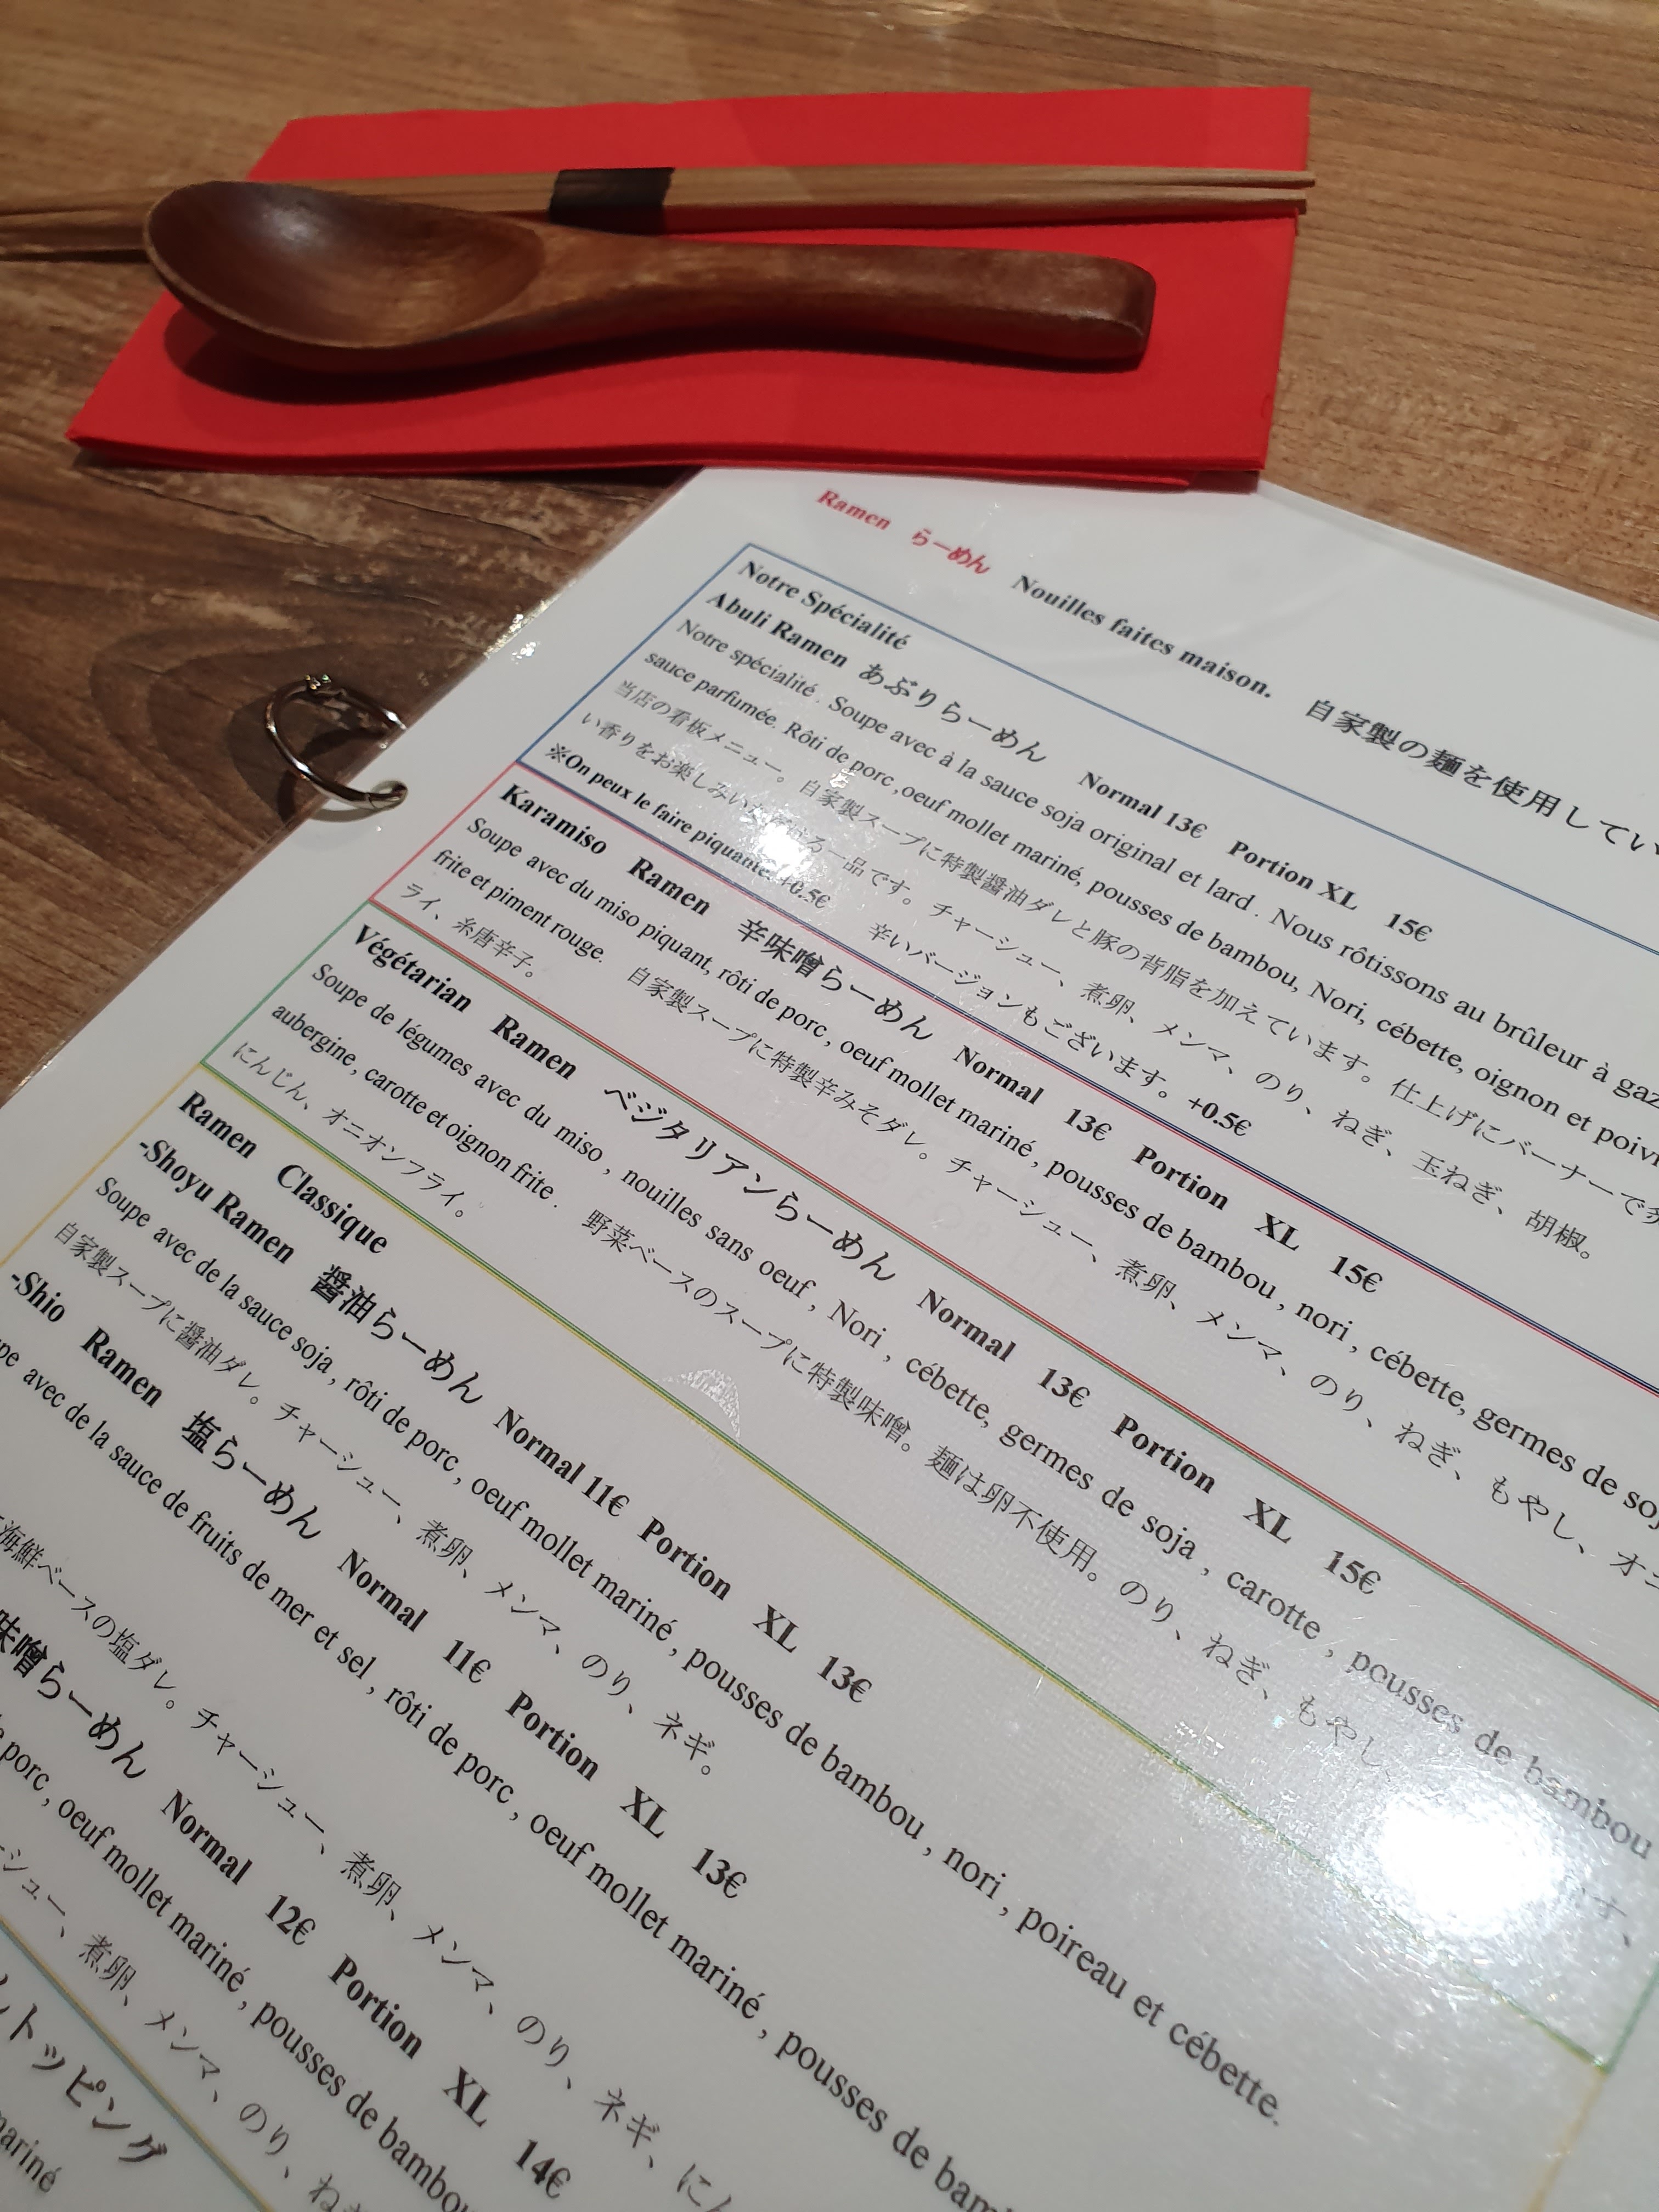 Ramen らーめん Nouilles faites maison. 自家製の麺を使用してい
Notre Spécialité
Abuli Ramen あぶりらーめん Normal 13€ Portion XL 15€
Notre spécialité . Soupe avec à la sauce soja original et lard . Nous rôtissons au brûleur à gaz
sauce parfumée. Rôti de porc ,oeuf mollet mariné, pousses de bambou, Nori, cébette, oignon et poiv
当店の看板メニュー。自家製スープに特製醤油ダレと豚の背脂を加えています。仕上げにバーナーで
い香りをお楽しみい る一品です。チャーシュー、煮卵、メンマ、のり、ねぎ、玉ねぎ、胡椒。
※On peux le faire piquante. +0.5€ 辛いバージョンもございます。+0.5€
Karamiso Ramen 辛味噌らーめん Normal 13€ Portion XL 15€
Soupe avec du miso piquant, rôti de porc , oeuf mollet mariné , pousses de bambou , nori , cébette, germes de so
frite et piment rouge. 自家製スープに特製辛みそダレ。チャーシュー、煮卵、メンマ、のり、ねぎ、もやし、オニ
ライ、糸唐辛子。
Végétarian Ramen ベジタリアンらーめん Normal 13€ Portion XL 15€
Soupe de légumes avec du miso , nouilles sans oeuf , Nori , cébette, germes de soja , carotte , pousses de bambou
aubergine , carotte et oignon frite . 野菜ベースのスープに特製味噌。麺は卵不使用。のり、ねぎ、もやし、
にんじん、オニオンフライ。
Ramen Classique
-Shoyu Ramen 醤油らーめん Normal 11€ Portion XL 13€
Soupe avec de la sauce soja , rôti de porc , oeuf mollet mariné , pousses de bambou , nori , poireau et cébette.
自家製スープに醤油ダレ。チャーシュー、煮卵、メンマ、のり、ネギ。
-Shio Ramen 塩らーめん Normal 11€ Portion XL 13€
pe avec de la sauce de fruits de mer et sel , rôti de porc , oeuf mollet mariné , pousses de bam
海鮮ベースの塩ダレ。チャーシュー、煮卵、メンマ、のり、ネギ、にん
味噌らーめん Normal 12€ Portion XL 14€
porc , oeuf mollet mariné , pousses de bambou
シュー、煮卵、メンマ、のり、ねぎ
トッピング
mariné